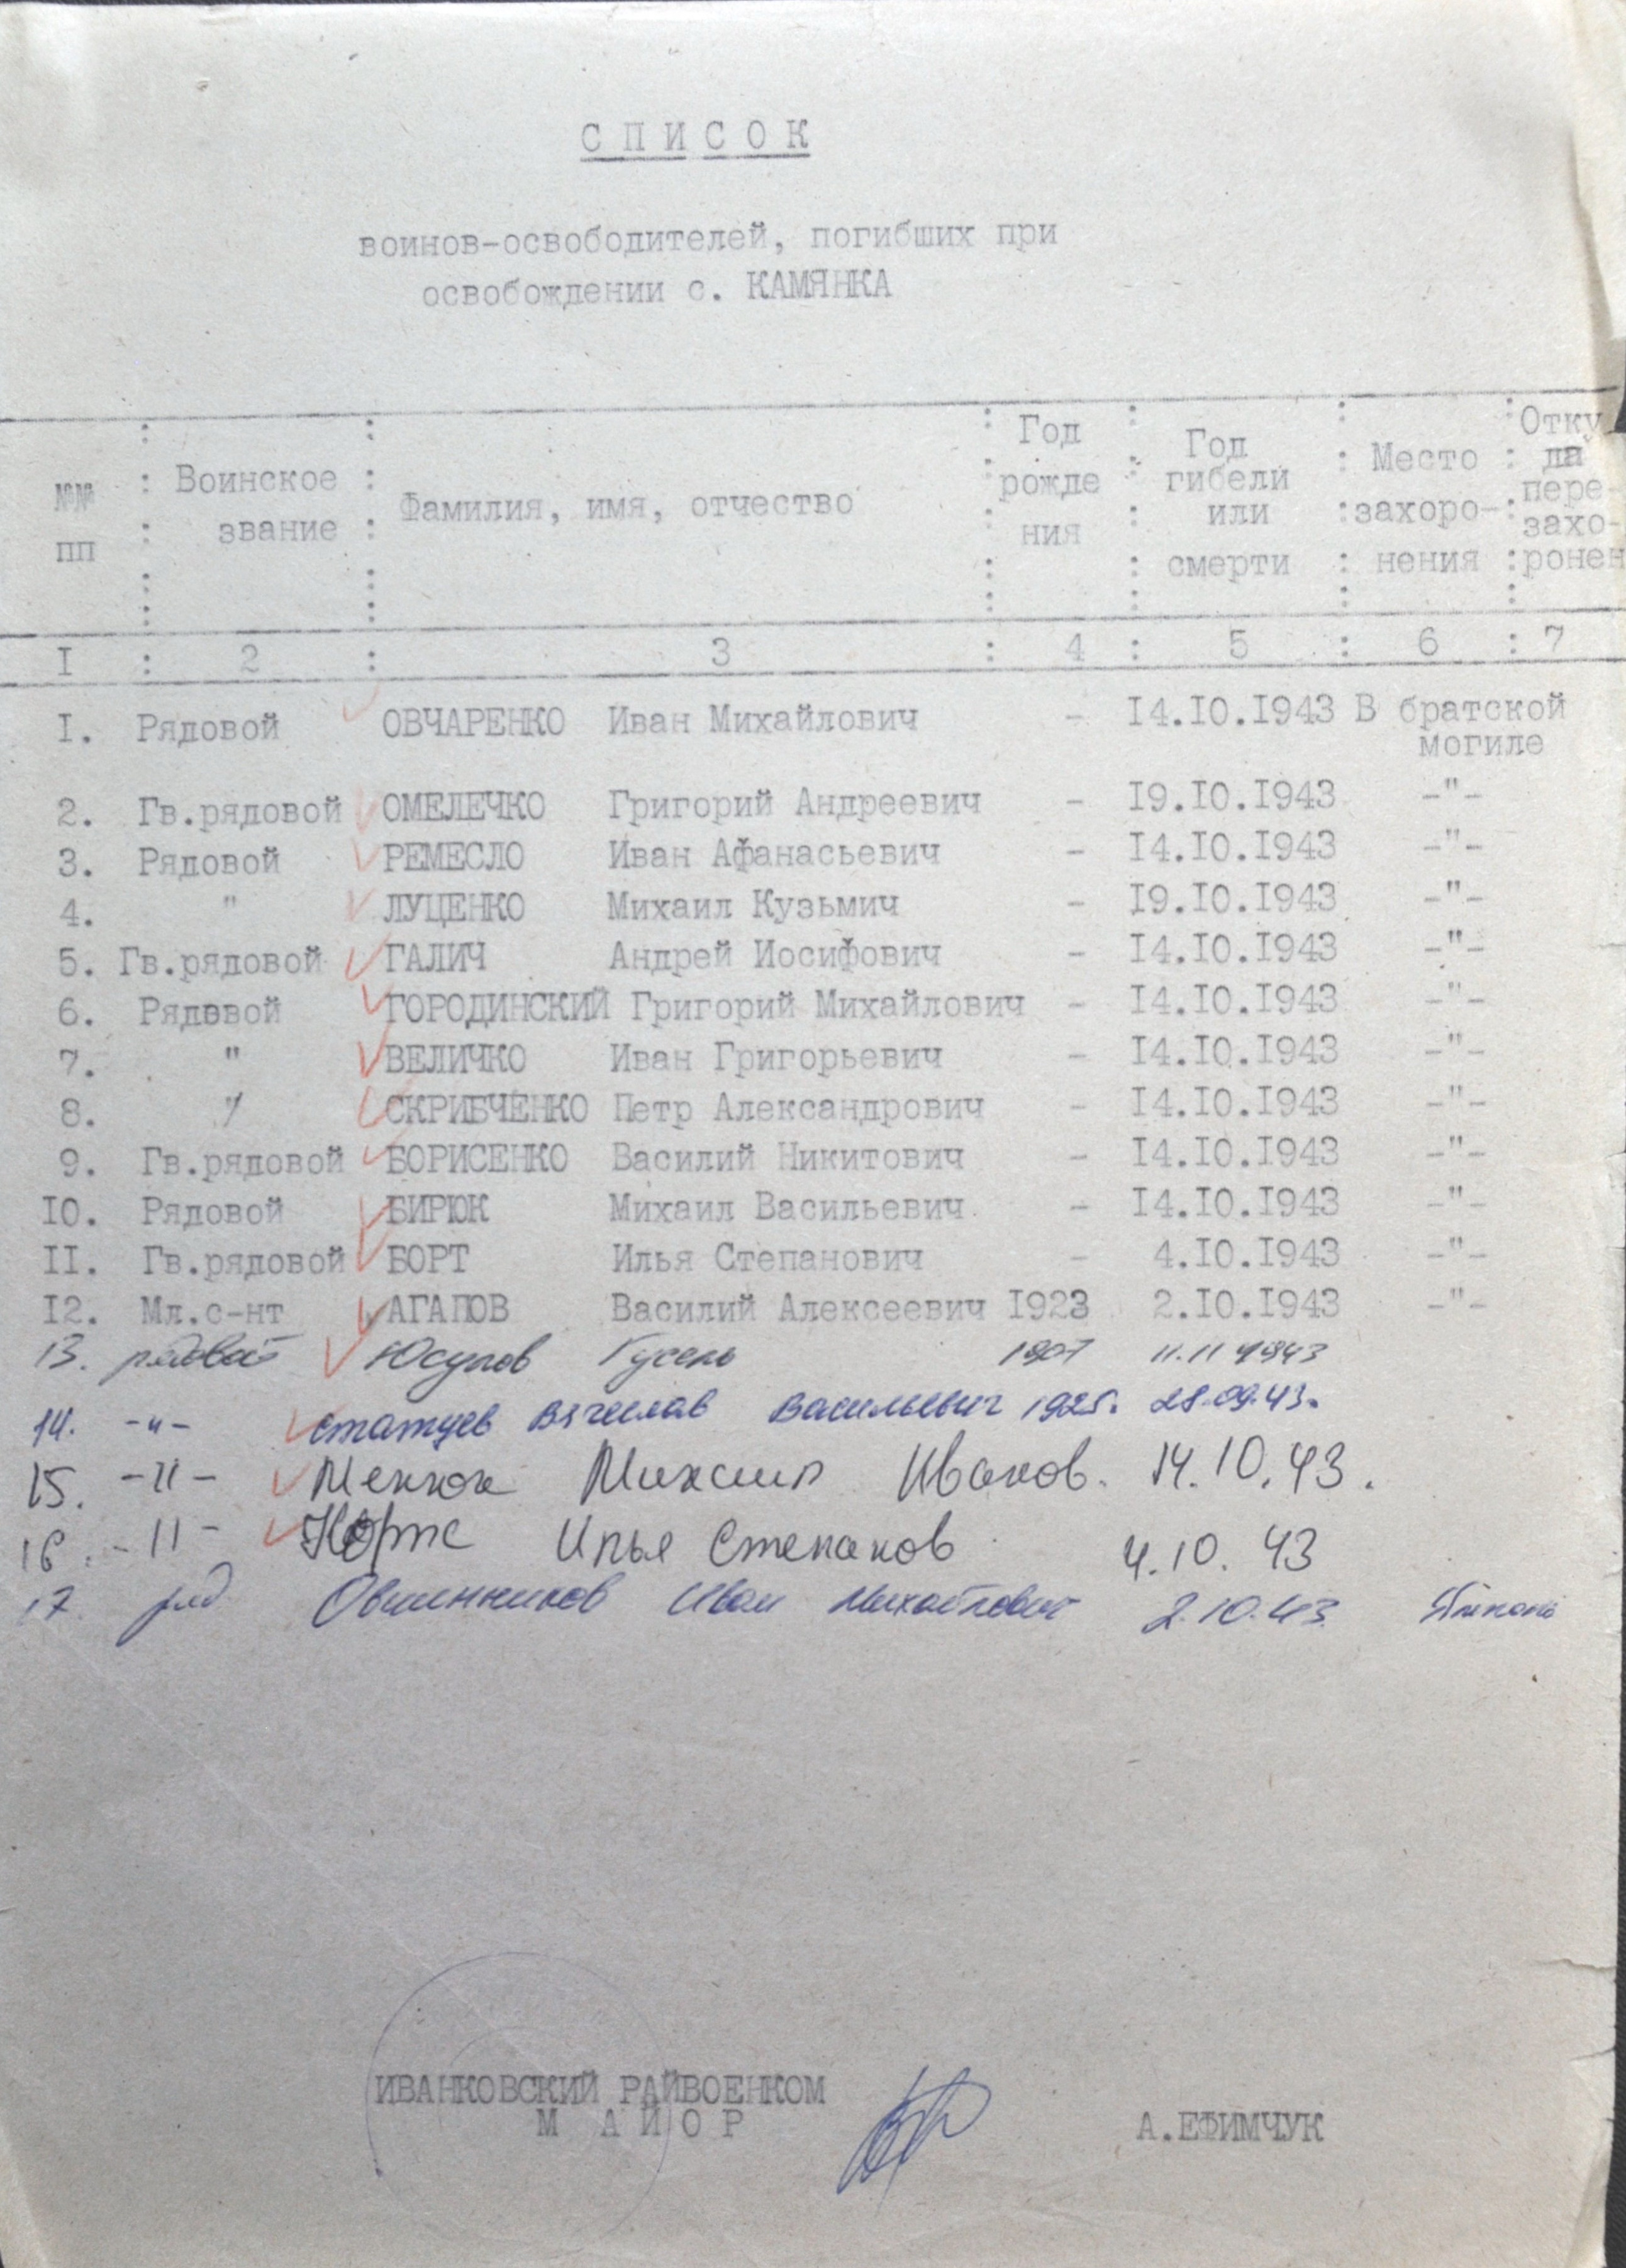 СПИСОК
воинов-освободителей, погибших при
освобождении с. КАМЯНКА
№№ пп : Воинское звание : Фамилия, имя, отчество : Год рожде ния : Год гибели или смерти : Место захоро- нения : Отку да пере- захо- ронен
I : 2 : 3 : 4 : 5 : 6 : 7
I. Рядовой ОВЧАРЕНКО Иван Михайлович - I4.I0.I943 В братской
могиле
2. Гв.рядовой ОМЕЛЕЧКО Григорий Андреевич - I9.I0.I943 -"-
3. Рядовой РЕМЕСЛО Иван Афанасьевич - I4.I0.I943 -"-
4. " ЛУЦЕНКО Михаил Кузьмич - I9.I0.I943 -"-
5. Гв.рядовой ГАЛИЧ Андрей Иосифович - I4.I0.I943 -"-
6. Рядовой ГОРОДИНСКИЙ Григорий Михайлович - I4.I0.I943 -"-
7. " ВЕЛИЧКО Иван Григорьевич - I4.I0.I943 -"-
8. " СКРИБЧЕНКО Петр Александрович - I4.I0.I943 -"-
9. Гв.рядовой БОРИСЕНКО Василий Никитович - I4.I0.I943 -"-
I0. Рядовой БИРЮК Михаил Васильевич - I4.I0.I943 -"-
II. Гв.рядовой БОРТ Илья Степанович - 4.I0.I943 -"-
I2. Мл.с-нт АГАПОВ Василий Алексеевич I923 2.I0.I943 -"-
13. рядовой Юсупов Гусень 1907 11.11 1943
14. -"- Статуев Вячеслав Васильевич 1925. 28.09.43.
15. -"- Михаил Иванов. 14.10.43.
16. -"- Илья Степанов 4.10.43
17. ряд Овчинников Иван Михайлович 2.10.43
ИВАНКОВСКИЙ РАЙВОЕНКОМ
МАЙОР А.ЕФИМЧУК